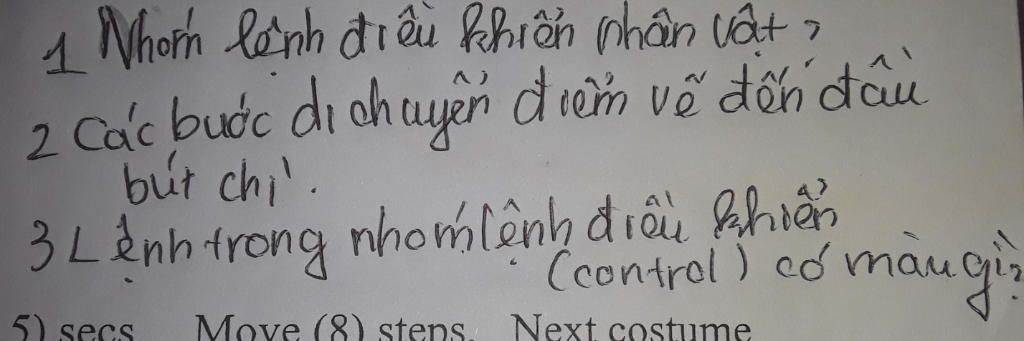 1 Nhóm lệnh điều khiển nhân vật?
2 Các bước di chuyển điểm vẽ đến đầu
bút chì.
3 Lệnh trong nhóm lệnh điều khiển
(control) có màu gì?
5) secs Move (8) steps. Next costume